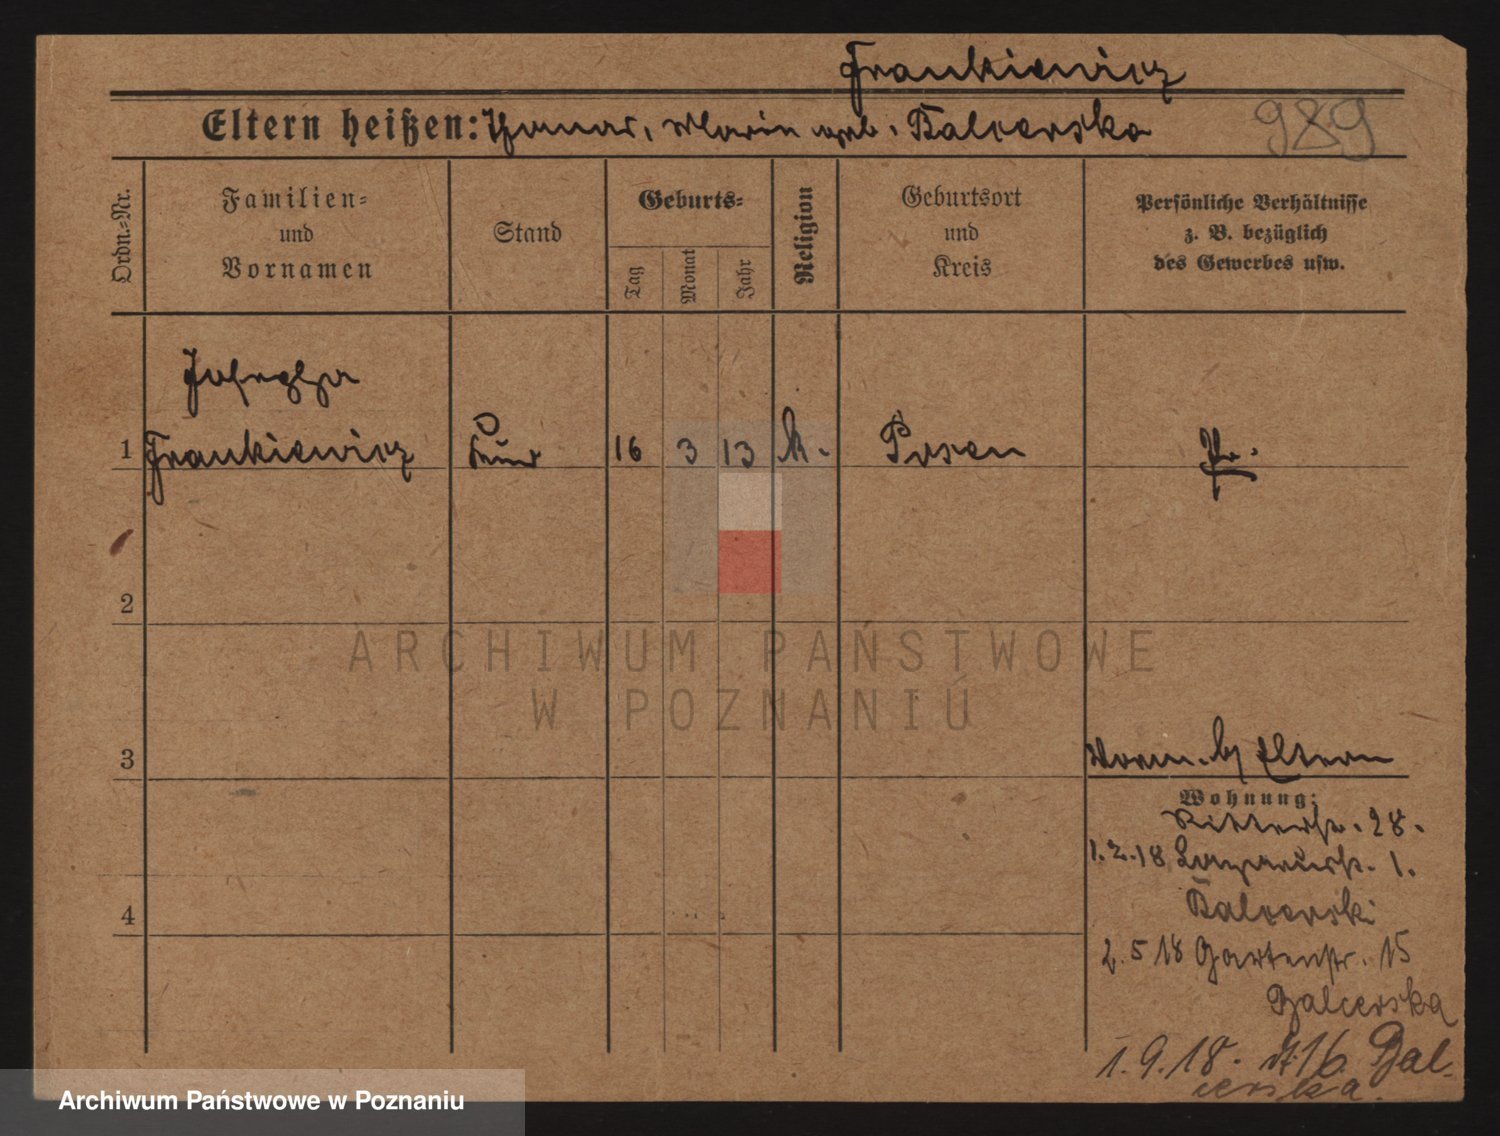 Frankiewicz
Eltern heißen: Thomas, Maria geb. Balcerska
989
Ordn.-Nr.
Familien-
und
Vornamen
Stand
Geburts-
Tag
Monat
Jahr
Religion
Geburtsort
und
Kreis
Persönliche Verhältnisse
z. B. bezüglich
des Gewerbes usw.
Josepha
1 Frankiewicz Kind 16 3 13 k. Posen Pr.
2
3
Eltern
Wohnung:
Ritterstr. 28.
1.2.18 Lazarusstr. 1.
Balcerski
4
2.5 18 Gartenstr. 15
Balcerska
1.9.18. 16 Bal-
cerska.
ARCHIWUM PAŃSTWOWE
W POZNANIU
Archiwum Państwowe w Poznaniu